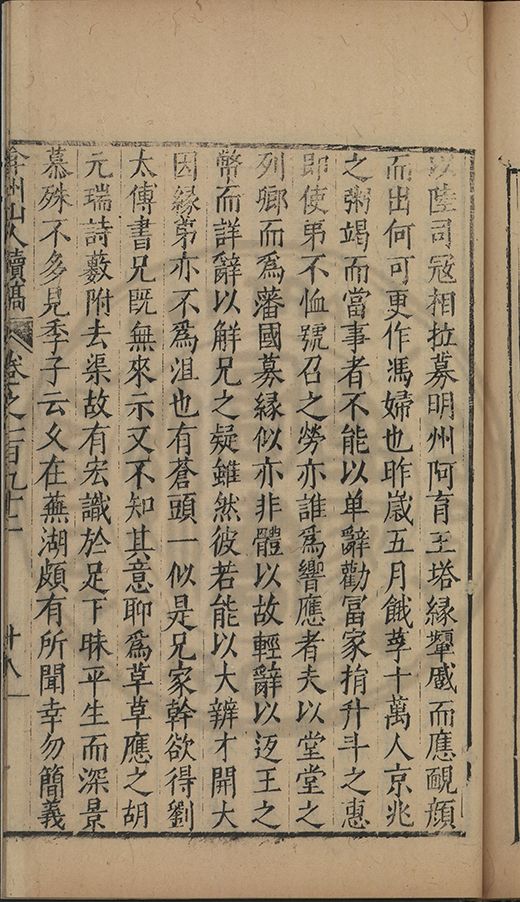 以陸司冦相拉募明州阿育王塔緣顰蹙而應靦顔
而出何可更作馮婦也昨嵗五月餓莩十萬人京兆
之粥竭而當事者不能以单辭勸冨家捐升斗之惠
即使弟不恤號召之勞亦誰爲響應者夫以堂堂之
列卿而爲藩國募緣似亦非體以故輕辭以迓王之
幣而詳辭以解兄之疑雖然彼若能以大辨才開大
因緣第亦不爲沮也有蒼頭一似是兄家幹欲得劉
太傅書兄既無來示又不知其意聊爲草草應之胡
元瑞詩藪附去渠故有宏識於足下昧平生而深景
慕殊不多見季子云乆在蕪湖頗有所聞幸勿簡義
弇州山人續稿 卷之一百九十二 十八